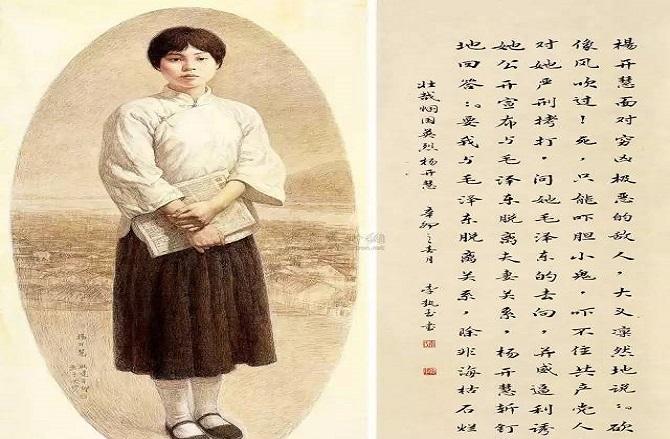 楊开慧面对穷凶极恶的敌人，大义凛然地说：砍
像风吹过！死，只能吓胆小鬼，吓不住共产党人
对她严刑拷打，问她毛泽东的去向，并威逼利诱
她公开宣布与毛泽东脱离夫妻关系，杨开慧斩钉
地回答：要我与毛泽东脱离关系，除非海枯石烂
壮哉国英烈杨开慧 辛卯之春月 李玉書
楊开慧